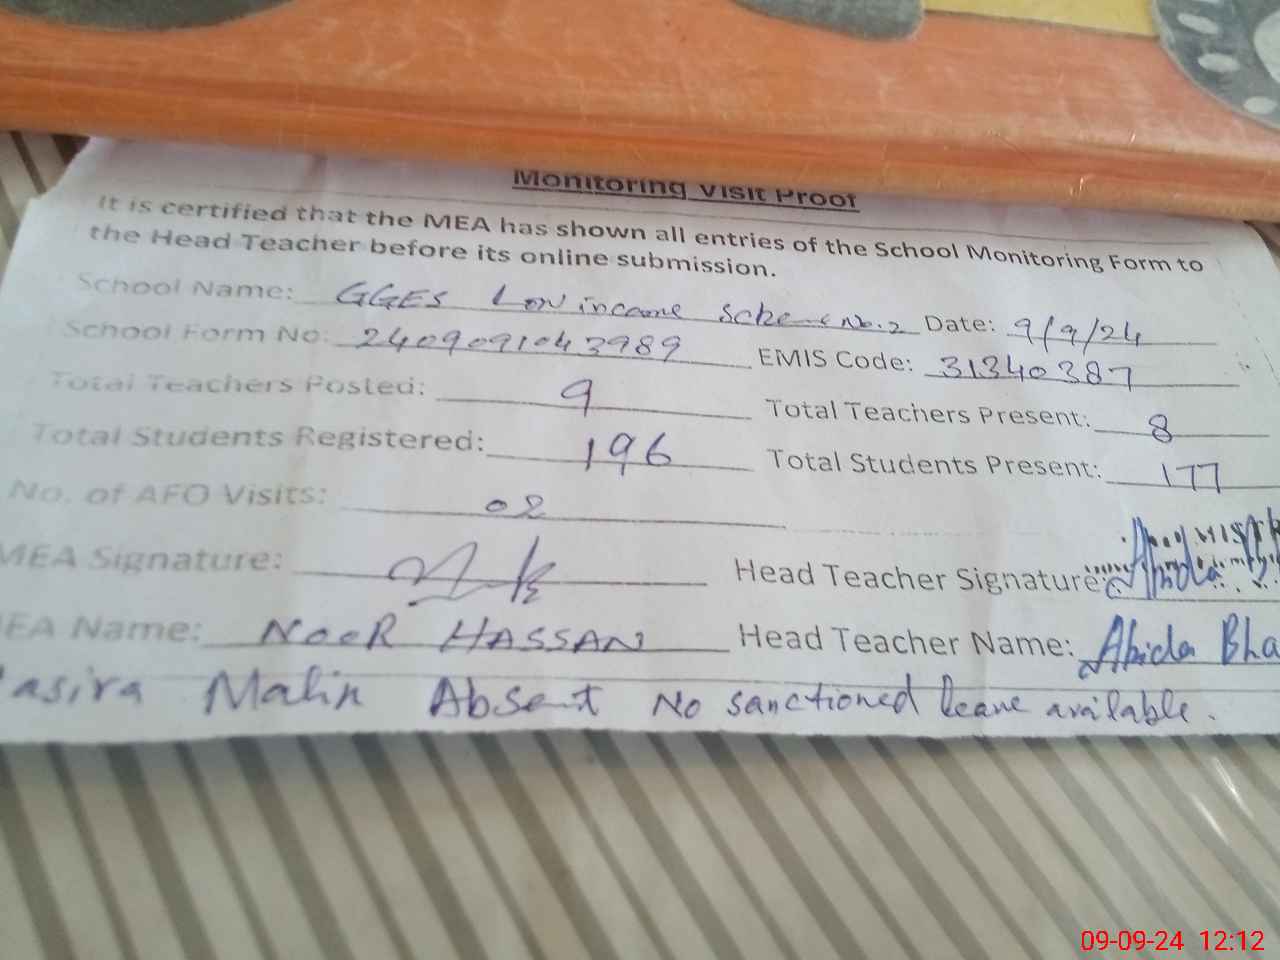 Monitoring Visit Proof
It is certified that the MEA has shown all entries of the School Monitoring Form to
the Head Teacher before its online submission.
School Name: GGES Low income Scheme No.2 Date: 9/9/24
School Form No: 2409091043989 EMIS Code: 31340387
Total Teachers Posted: 9 Total Teachers Present: 8
Total Students Registered: 196 Total Students Present: 177
No. of AFO Visits: 02
MEA Signature: Head Teacher Signature: Abida
EA Name: NOOR HASSAN Head Teacher Name: Abida Bha
asira Malik Absent No sanctioned leave available.
09-09-24 12:12